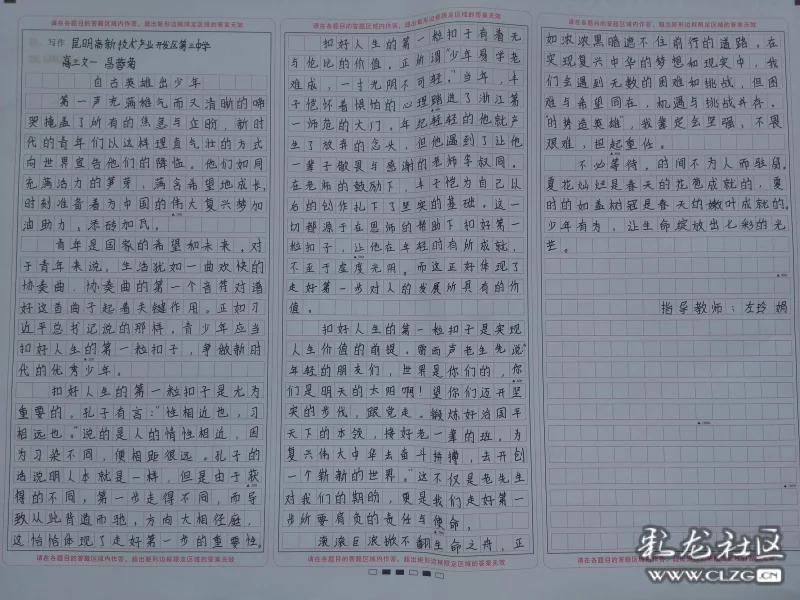 请在各题目的答题区域内作答,超出矩形边框限定区域的答案无效
写作 昆明高新技术产业开发区第三中学
高三文一 吕蓉菊
自古英雄出少年
第一声充满雄气而又清晰的啼
哭掩盖了所有的焦急与企盼,新时
代的青年们以这样理直气壮的方式
向世界宣告他们的降临。他们如同
充满活力的笋芽,满含希望地成长,
时刻准备着为中国的伟大复兴梦加
油助力,添砖加瓦。
青年是国家的希望和未来,对
于青年来说,生活犹如一曲欢快的
协奏曲,协奏曲的第一个音符对谱
好这首曲子起着关键作用。正如习
近平总书记说的那样,青少年应当
扣好人生的第一粒扣子,争做新时
代的优秀少年。
扣好人生的第一粒扣子是尤为
重要的。孔子有言:“性相近也,习
相远也。”说的是人的情性相近,因
为习染不同,便相距很远。孔子的
话说明人本就是一样,但是由于获
得的不同,第一步走得不同,而导
致从此背道而驰,方向大相径庭,
这恰恰体现了走好第一步的重要性。
请在各题目的答题区域内作答,超出矩形边框限定区域的答案无效
请在各题目的答题区域内作答,超出矩形边框限定区域的答案无效
扣好人生的第一粒扣子有着无
与伦比的价值。正所谓“少年易学老
难成,一寸光阴不可轻。”当年,丰
子恺怀着惧怕的心理踏进了浙江第
一师范的大门,年纪轻轻的他就产
生了放弃的念头,但他遇到了让他
一辈子敬畏与感谢的老师李叔同。
在老师的鼓励下,丰子恺为自己以
后的创作扎下了坚实的基础。这一
切都源于在恩师的帮助下扣好第一
粒扣子,让他在年轻时有所成就,
不至于虚度光阴。而这正好体现了
走好第一步对人的发展所具有的价
值。
扣好人生的第一粒扣子是实现
人生价值的前提。雷雨声老先生说
年轻的朋友们,世界是你们的,你
们是明天的太阳啊!望你们迈开坚
实的步伐,跟党走。锻炼好治国平
天下的本领,接好老一辈的班。为
复兴伟大中华去奋斗拼搏,去开创
一个崭新的世界。”这不仅是老先生
对我们的期盼,更是我们走好第一
步所要肩负的责任与使命。
滚滚巨浪掀不翻生命之舟,正
请在各题目的答题区域内作答,超出矩形边框限定区域的答案无效
请在各题目的答题区域内作答,超出矩形边框限定区域的答案无效
如浓浓黑暗遮不住前行的道路。在
实现复兴中华的梦想和现实中,我
们会遇到无数的困难和挑战,但困
难与希望同在,机遇与挑战并存。
“时势造英雄”,我辈定会坚强,不畏
艰难,担起重任。
不必等待,时间不为人而驻留。
夏花灿烂是春天的花苞成就的,夏
时的如盖树冠是春天的嫩叶成就的。
少年有为,让生命绽放出七彩的光
芒。
指导教师:左玲娟
请在各题目的答题区域内作答,超出矩形边框限定区域的答案无效
彩龙社区
WWW.CLZG.CN